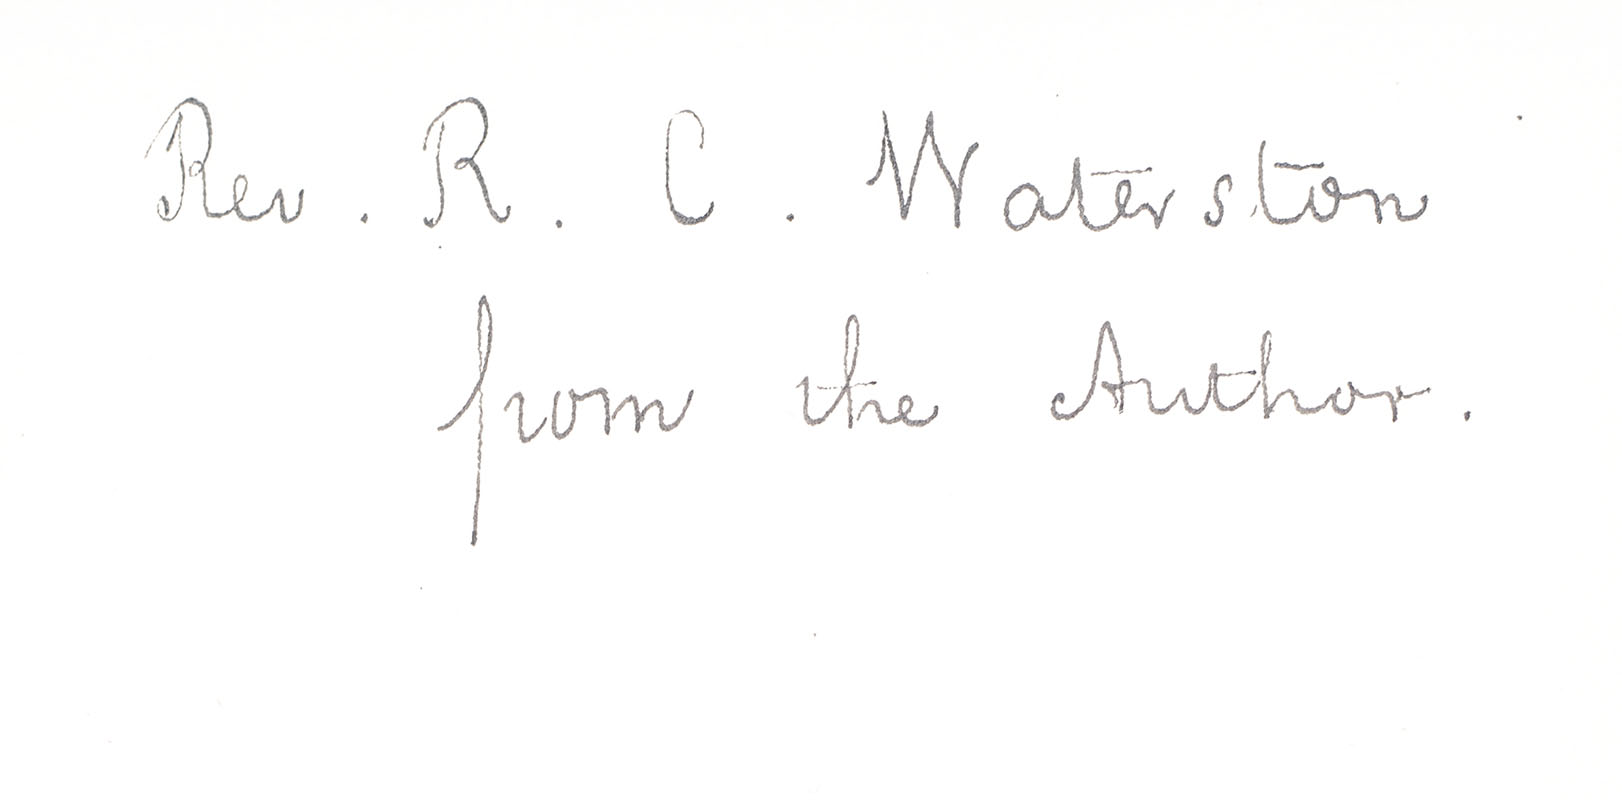 Rev. R. C. Waterston
from the Author.